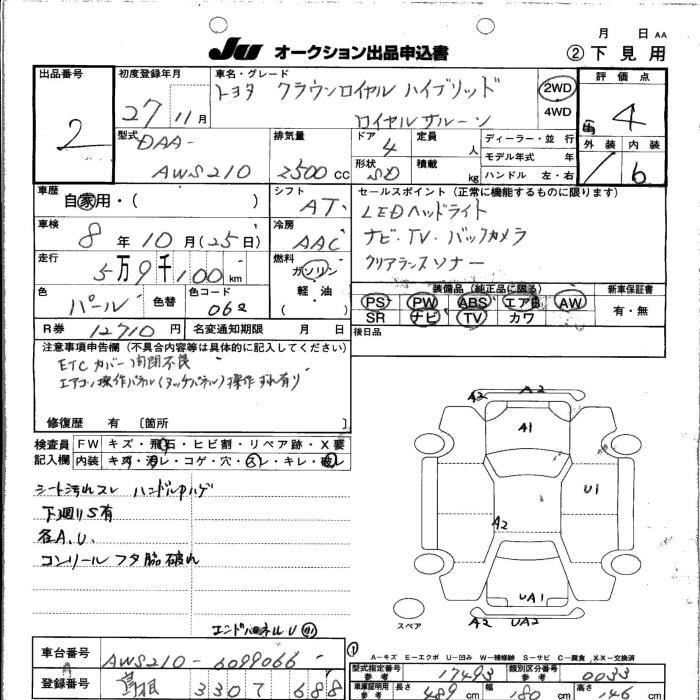 月 日 AA
JU オークション出品申込書 ②下見用
出品番号 2
初度登録年月 27 11月
車名・グレード トヨタ クラウンロイヤル ハイブリッド
ロイヤルサルーン
2WD
4WD
評価点 4
外装 内装 6
型式 DAA-
AWS210
排気量 2500 CC
ドア 4
形状 SD
定員 人
積載 kg
ディーラー・並行
モデル年式 年
ハンドル 左・右
車歴 自家用・( )
シフト AT
セールスポイント(正常に機能するものに限ります)
LEDヘッドライト
ナビ・TV・バックカメラ
クリアランスソナー
車検 8年10月(25日)
冷房 AAC
走行 5万9千100km
燃料 ガソリン
軽・油
( )
色 パール 色替
色コード 062
装備品(純正品に限る)
PS PW ABS エアB AW
SR ナビ TV カワ
新車保証書
有・無
R券 12710円 名変通知期限 月 日
後日品
注意事項申告欄(不具合内容等は具体的に記入してください)
ETCカバー開閉不良
エアコン操作パネル(タッチパネル)操作すれ有り
修復歴 有 〔箇所 〕
検査員記入欄
FW キズ・飛石・ヒビ割・リペア跡・X要
内装 キズ・汚レ・コゲ・穴・スレ・キレ・破レ
シート汚れスレ ハンドルウハゲ
下廻りS有
各A.U.
コンソールフタ脇破れ
エンドパネルU
A2 A2
A1
U1
A2
UA1
A2 UA2
スペア
A-キズ E-エクボ U-凹み W-補修跡 S-サビ C-腐食 X,X-交換済
車台番号 AWS210-6099066
型式指定番号 参考 17493
類別区分番号 参考 0033
登録番号 島根 330 7 688
車庫証明用 参考 長さ 489 cm 幅 180 cm 高さ 146 cm